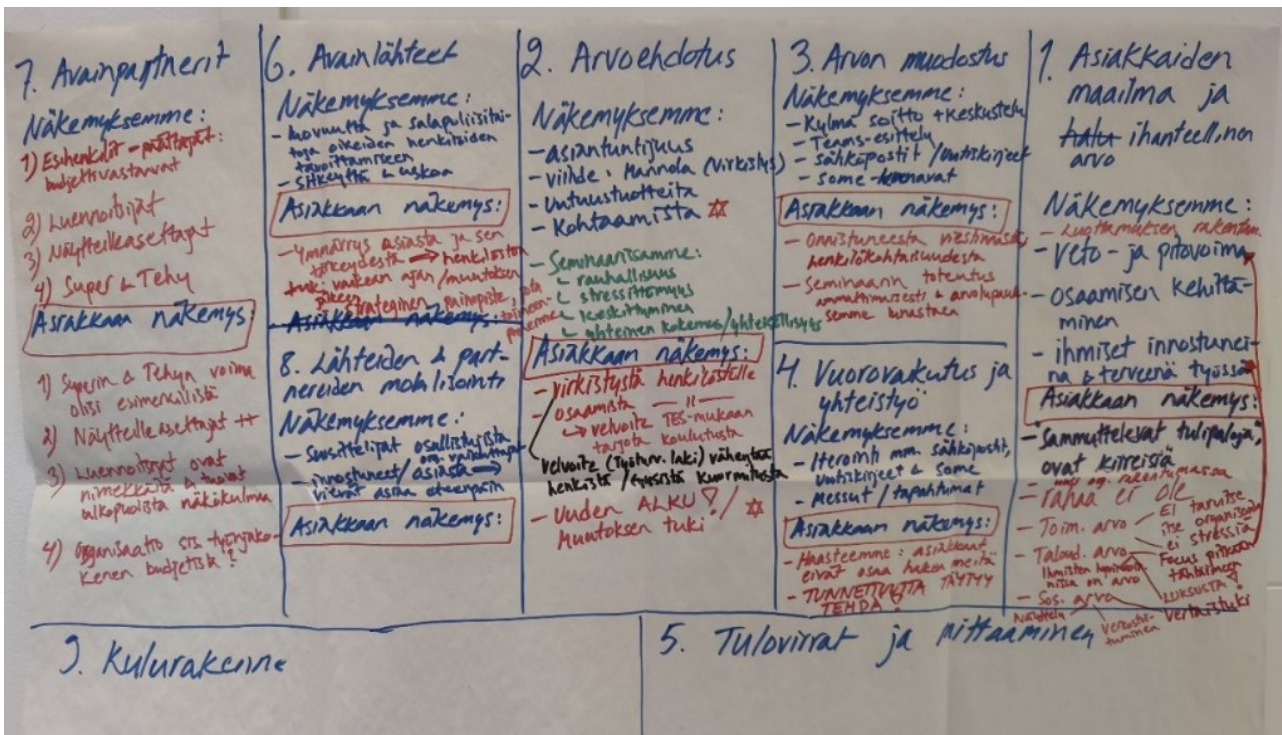 7. Avainpartnerit
Näkemyksemme:
1) Esihenkilöt - päättäjät:
budjettivastaavat
2) Luennoitsijat
3) Näytteilleasettajat
4) Super & Tehy
Asiakkaan näkemys:
1) Superin & Tehyn voima
olisi esimerkillistä
2) Näytteilleasettajat ++
3) Luennoitsijat ovat
nimekkäitä & tuovat
ulkopuolista näkökulmaa
4) Organisaatio sis. työnjako-
Kenen budjetista?
6. Avainlähteet
Näkemyksemme:
- Luovuutta ja salapoliisitai-
toja oikeiden henkilöiden
tavoittamiseen
- sitkeyttä & uskoa
Asiakkaan näkemys:
- Ymmärrys asiasta ja sen
tärkeydestä → henkilöstön
tuki vaikean ajan/muutoksen
jälkeen
strateginen painopiste, jota
Asiakkaan näkemys:
8. Lähteiden & part-
nereiden mobilisointi
Näkemyksemme:
- Suosittelijat osallistujista
- innostuneet/asiasta →
vievät asiaa eteenpäin
Asiakkaan näkemys:
2. Arvoehdotus
Näkemyksemme:
- asiantuntijuus
- viihde: Mannola (virkistys)
- Uutuustuotteita
- Kohtaamista ✡
- Seminaarissamme:
↳ rauhallisuus
↳ stressittömyys
↳ keskittyminen
↳ yhteinen kokemus/yhteisöllisyys
Asiakkaan näkemys:
- virkistystä henkilöstölle
- osaamista — 11 —
↳ velvoite TES-mukaan
tarjota koulutusta
velvoite (Työturv. laki) vähentää
henkistä/fyysistä kuormitusta
- Uuden ALKU!/ ✡
Muutoksen tuki!
3. Arvon muodostus
Näkemyksemme:
- Kylmä soitto + keskustelu
- Teams-esittely
- sähköpostit/uutiskirjeet
- some-kanavat
Asiakkaan näkemys:
- Onnistuneesta viestinnästä,
henkilökohtaisuudesta
- Seminaarin toteutus
ammattimaisesti & arvolupauk-
semme lunastaen
4. Vuorovaikutus ja
yhteistyö
Näkemyksemme:
- Iterointi mm. sähköpostit,
uutiskirjeet & some
- Messut/tapahtumat
Asiakkaan näkemys:
- Haasteemme: asiakkaat
eivät osaa hakea meitä
- TUNNETTUUTTA TÄYTYY
TEHDÄ!
1. Asiakkaiden
maailma ja
ihanteellinen
arvo
Näkemyksemme:
- Luottamuksen rakentam.
- Veto- ja pitovoima
- osaamisen kehittä-
minen
- ihmiset innostunei-
na & terveenä työssä
Asiakkaan näkemys:
- "Sammuttelevat tulipaloja",
ovat kiireisiä
uusi org. rakentumassa
- rahaa ei ole
- Toim. arvo
Ei tarvitse
itse organisoida
ei stressiä
- Taloud. arvo
Focus pitkään
tähtäimeen
on arvo
LUKSUSTA!
- Sos. arvo
Vertaistuki
Näyttely
Verkostoi-
tuminen
9. Kulurakenne
5. Tulovirrat ja mittaaminen